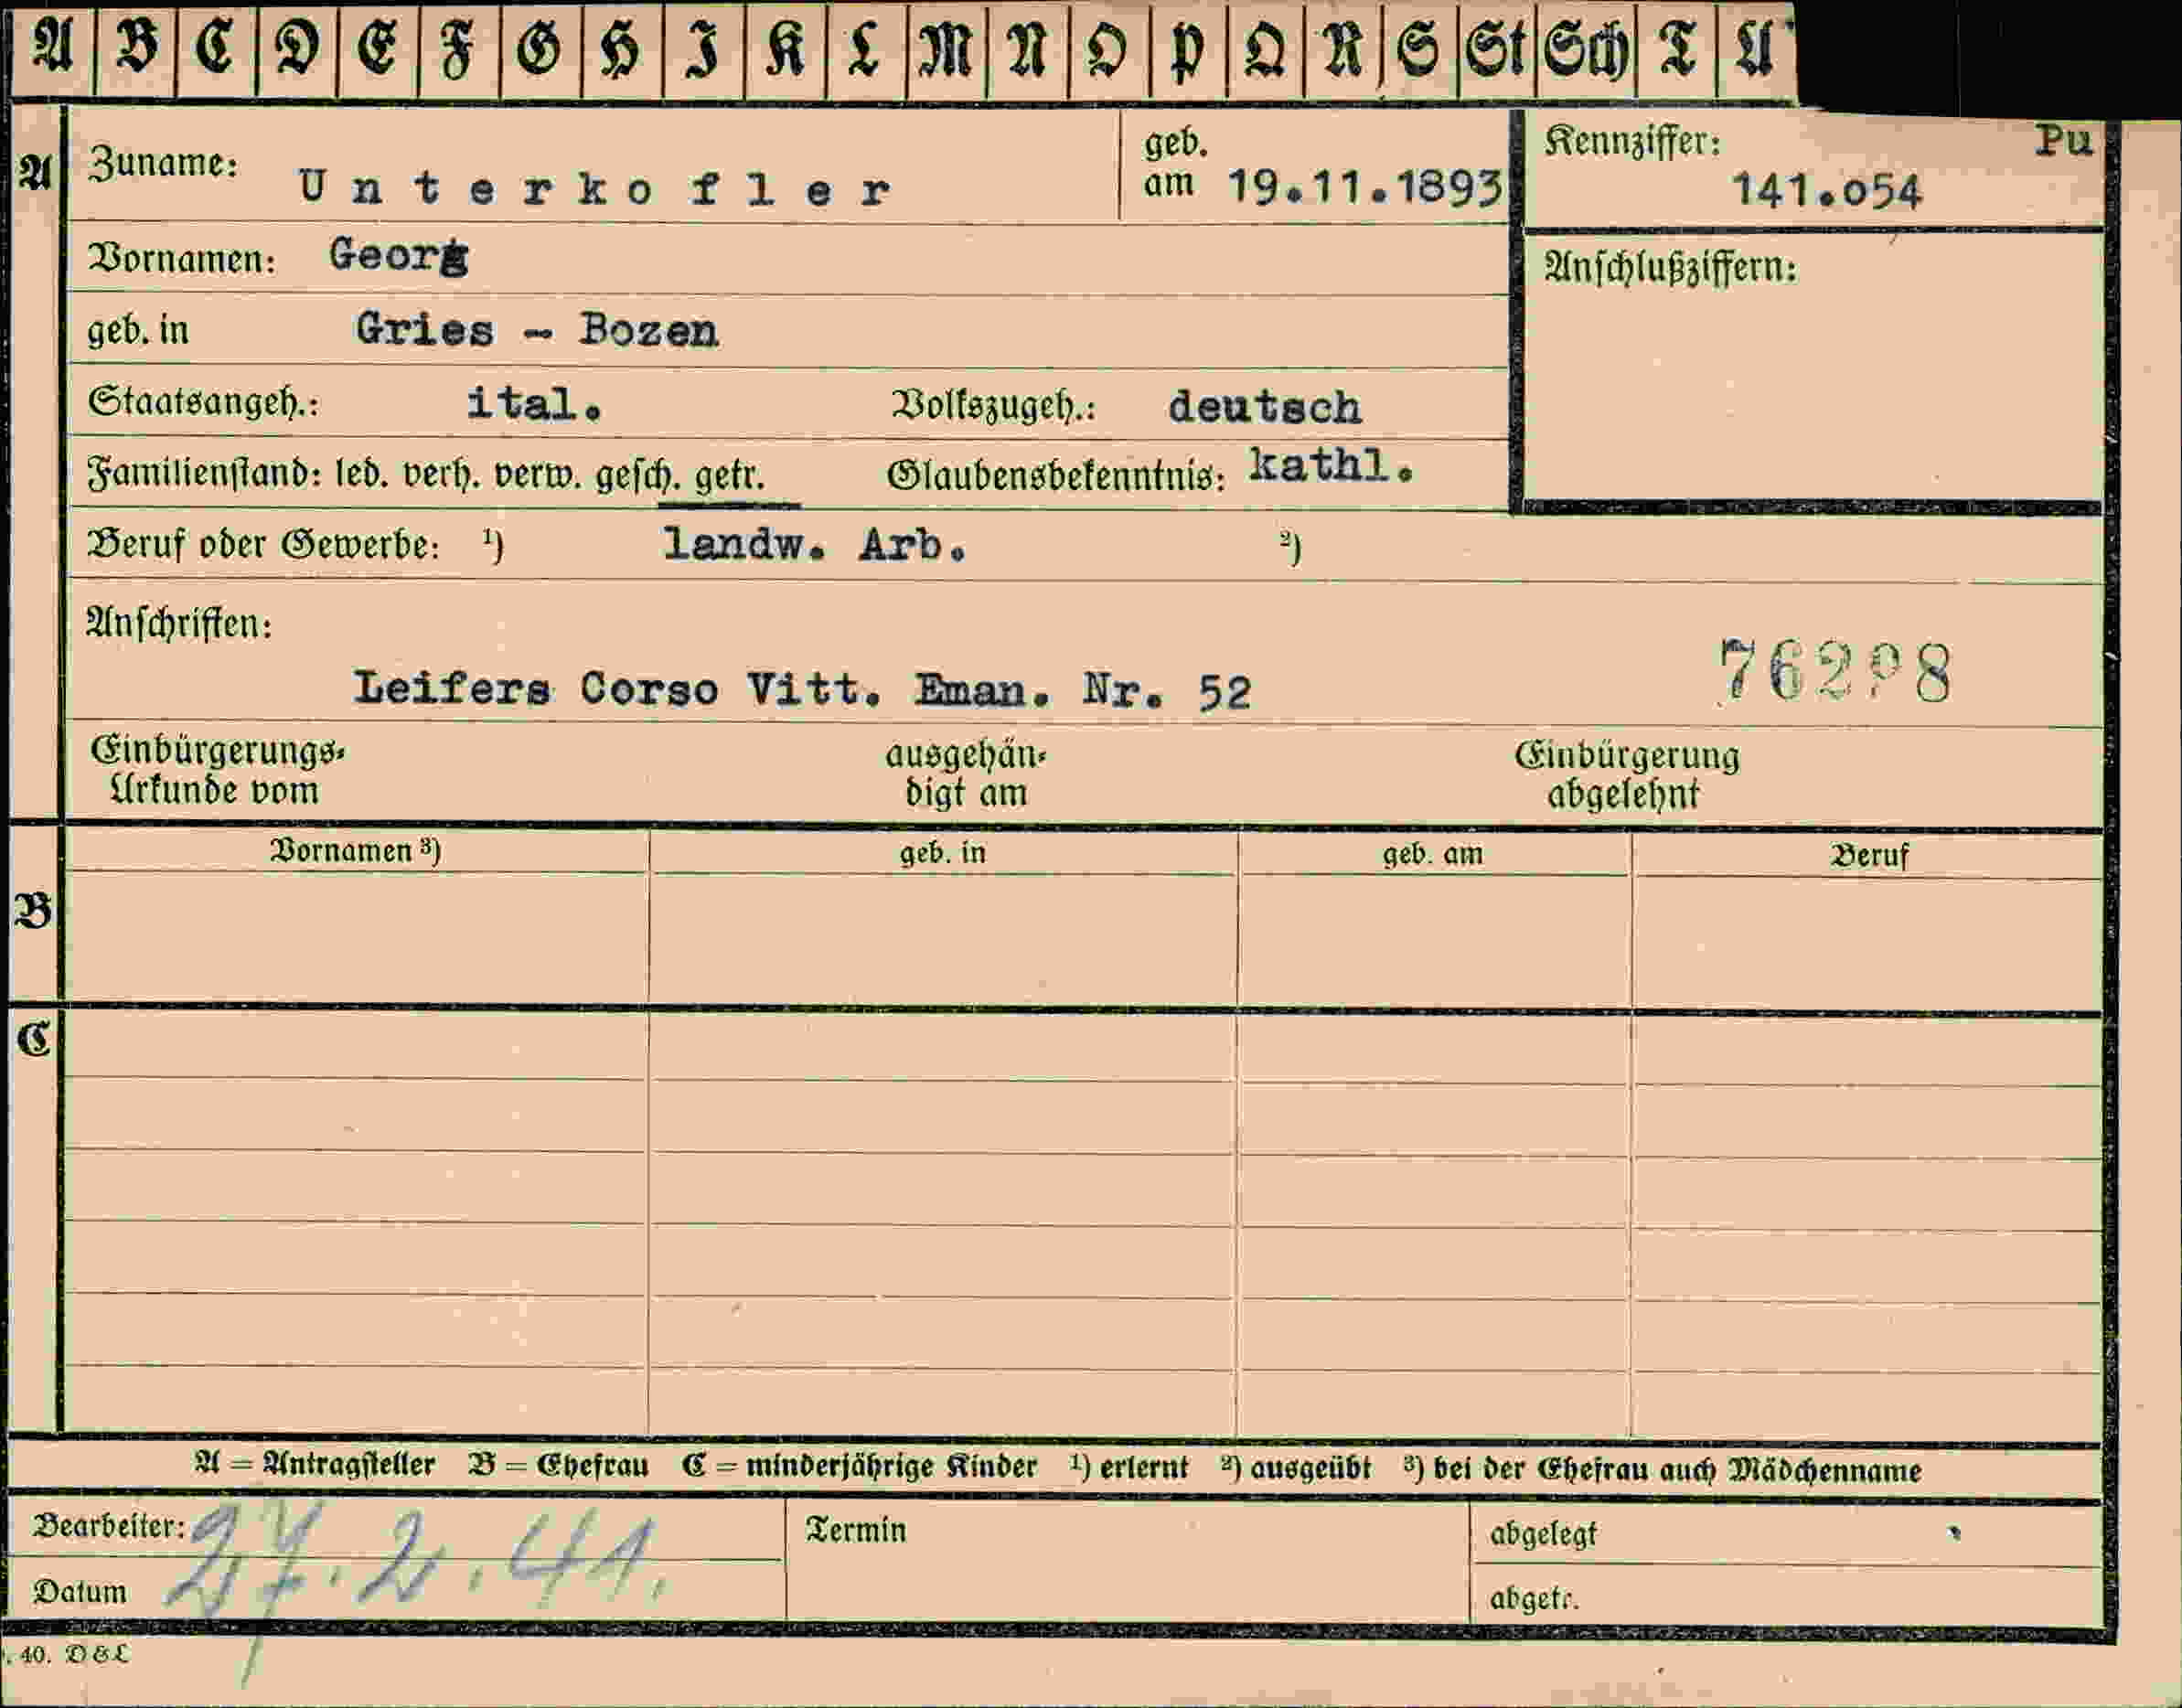 A B C D E F G H I K L M N O P Q R S St Sch T U
A Zuname: Unterkofler geb. am 19.11.1893 Kennziffer: 141.o54 Pu
Vornamen: Georg
Anschlußziffern:
geb. in Gries - Bozen
Staatsangeh.: ital. Volkszugeh.: deutsch
Familienstand: led. verh. verw. gesch. getr. Glaubensbekenntnis: kathl.
Beruf oder Gewerbe: 1) landw. Arb. 2)
Anschriften:
Leifers Corso Vitt. Eman. Nr. 52
Einbürgerungs- ausgehän- Einbürgerung
Urkunde vom digt am abgelehnt
Vornamen 3) geb. in geb. am Beruf
B
C
A = Antragsteller B = Ehefrau C = minderjährige Kinder 1) erlernt 2) ausgeübt 3) bei der Ehefrau auch Mädchenname
Bearbeiter: Termin abgelegt
27.2.41.
Datum abgetr.
. 40. D & L